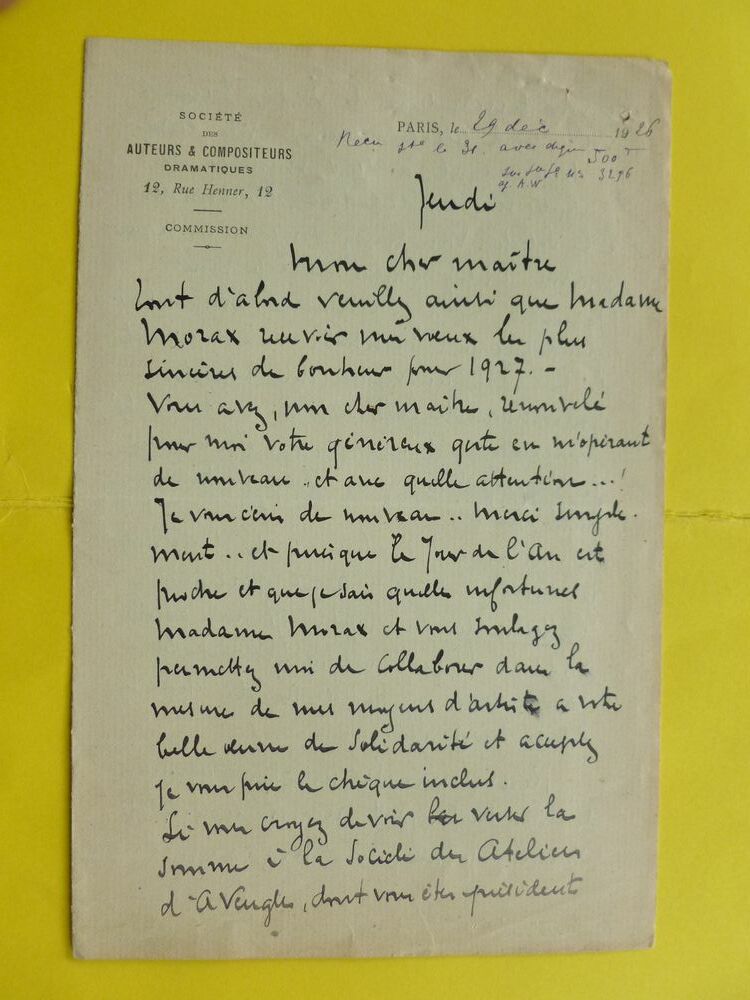 SOCIÉTÉ
DES
AUTEURS & COMPOSITEURS
DRAMATIQUES
12, Rue Henner, 12
COMMISSION
PARIS, le 29 dec 1926
Recu le 31. avec 500
3296
Jeudi
Mon cher maître
Tout d'abord veuillez ainsi que Madame
Morax recevoir mes vœux les plus
sincères de bonheur pour 1927. -
Vous avez, mon cher maître, renouvelé
pour moi votre généreux geste en m'opérant
de nouveau .. et avec quelle attention...!
Je vous écris de nouveau .. Merci simple-
ment .. et puisque le Jour de l'An est
proche et que je sais quelles infortunes
Madame Morax et vous soulagez
permettez moi de collaborer dans la
mesure de mes moyens d'artiste a votre
belle œuvre de Solidarité et acceptez
je vous prie le chèque inclus.
Si vous croyez devoir verser la
somme à la Société des Ateliers
d'Aveugles, dont vous êtes président